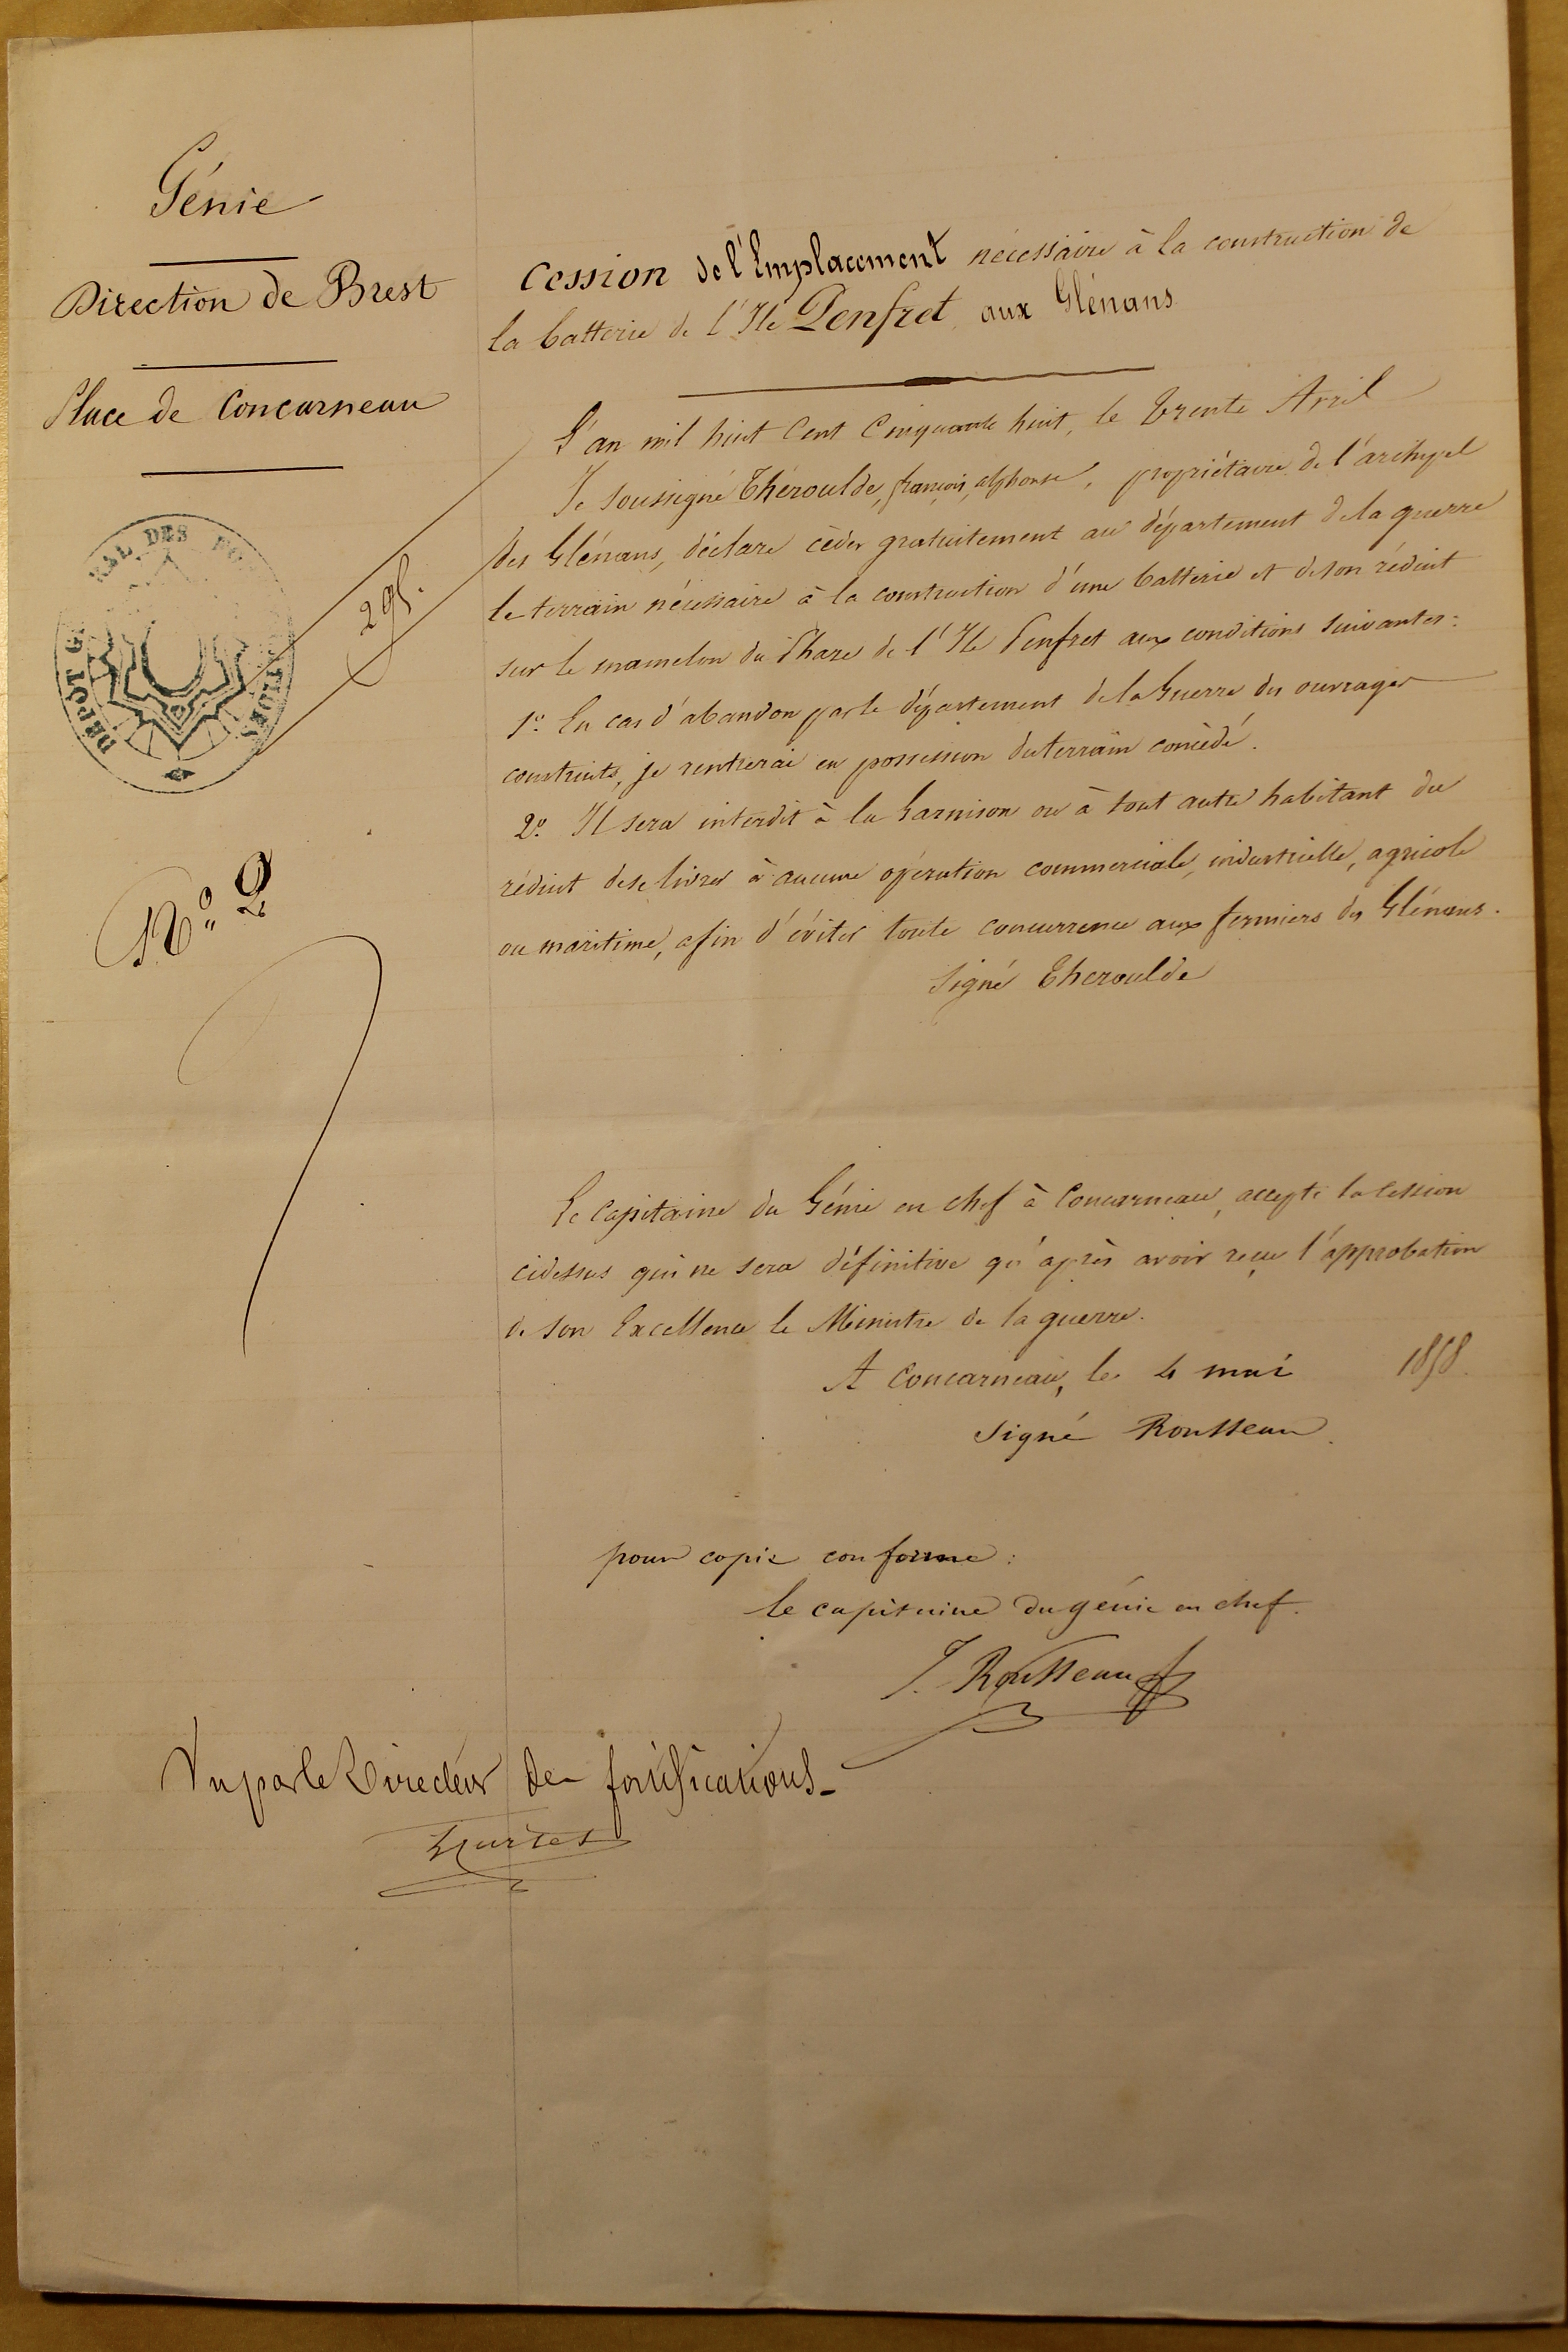 Génie
Direction de Brest
Place de Concarneau
DEPOT G RAL DES FO
295.
N.° 2
Cession de l'Emplacement nécessaire à la construction de
la batterie de l'Ile Penfret aux Glénans
L'an mil huit Cent Cinquante huit, le trente Avril
Je soussigné Théroulde, françois, alphonse, propriétaire de l'archipel
des Glénans, déclare céder gratuitement au département de la guerre
le terrain nécessaire à la construction d'une batterie et de son réduit
sur le mamelon du Phare de l'Ile Penfret aux conditions suivantes:
1.° En cas d'abandon par le département de la Guerre des ouvrages
construits, je rentrerai en possession du terrain concédé.
2.° Il sera interdit à la Garnison ou à tout autre habitant du
réduit de se livrer à aucune opération commerciale, industrielle, agricole
ou maritime, afin d'éviter toute concurrence aux fermiers des Glénans.
Signé Theroulde
Le Capitaine du Génie en chef à Concarneau, accepte la cession
cidessus qui ne sera définitive qu'après avoir reçu l'approbation
de son Excellence le Ministre de la guerre.
A Concarneau, le 4 mai 1858.
Signé Rousseau.
pour copie conforme:
le capitaine du génie en chef.
J. Rousseau
Vu par le Directeur des fortifications_